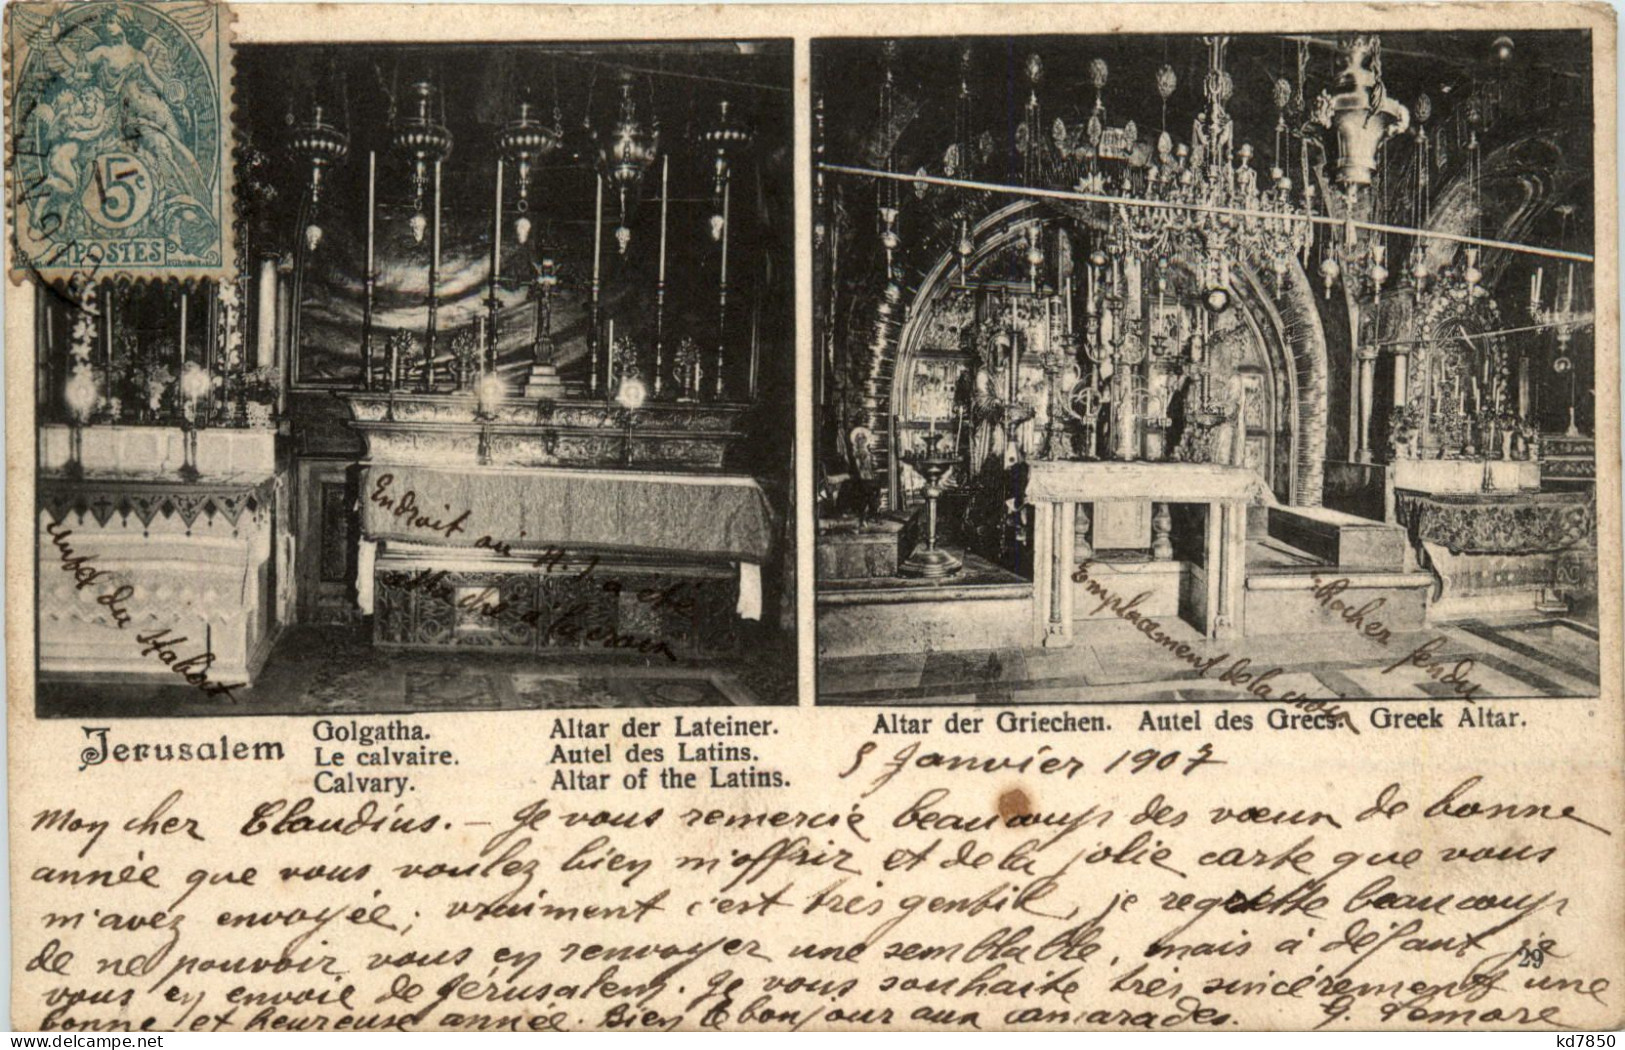 5c
POSTES
autel du Stabat
Endroit où N. J. a été
attaché à la croix
Emplacement de la croix
Rocher fendu
Jerusalem
Golgatha.
Le calvaire.
Calvary.
Altar der Lateiner.
Autel des Latins.
Altar of the Latins.
Altar der Griechen. Autel des Grecs. Greek Altar.
5 Janvier 1907
Mon cher Claudius. – Je vous remercie beaucoup des vœux de bonne
année que vous voulez bien m'offrir et de la jolie carte que vous
m'avez envoyée; vraiment c'est très gentil, je regrette beaucoup
de ne pouvoir vous en renvoyer une semblable, mais à défaut je
29
vous en envoie de Jérusalem. Je vous souhaite très sincèrement une
bonne et heureuse année. Bien le bonjour aux camarades.
kd7850